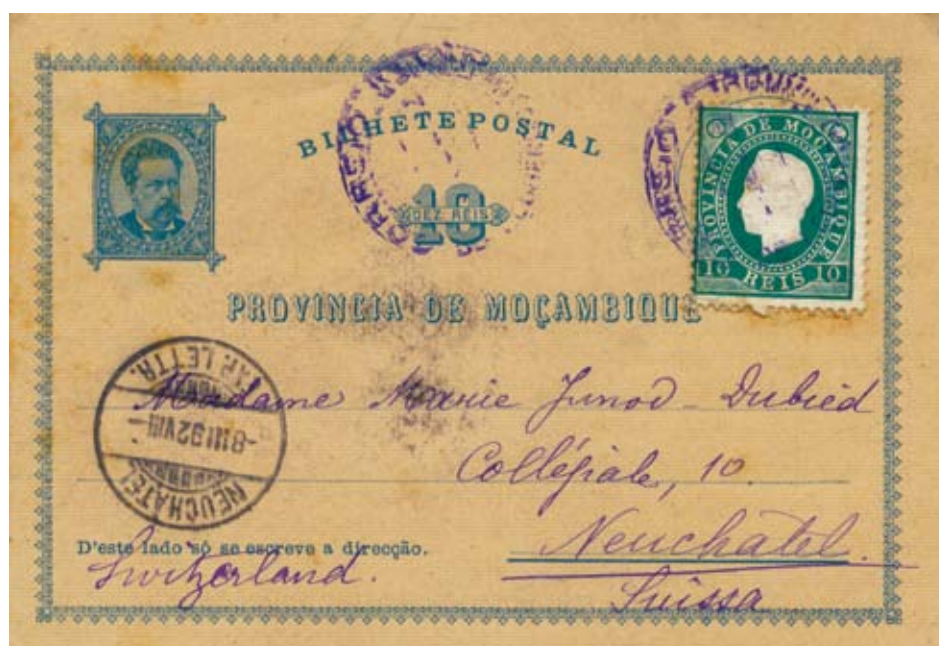 BILHETE POSTAL
10
DEZ REIS
PROVINCIA DE MOÇAMBIQUE
10 REIS 10
PROVINCIA DE MOÇAMBIQUE
NEUCHATEL
-8 III 92 VIII
LETTR.
Madame Marie Junod-Dubied
Collégiale, 10.
D'este lado só se escreve a direcção.
Neuchâtel.
Switzerland.
Suissa